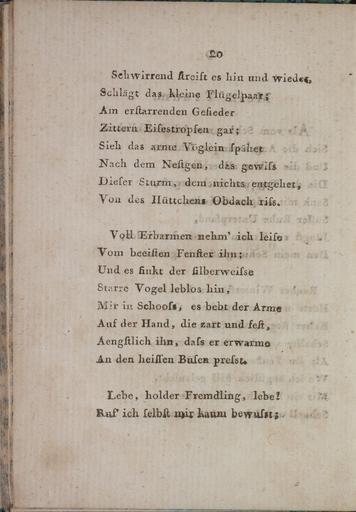 20
Schwirrend ſtreift es hin und wieder,
Schlägt das kleine Flügelpaar;
Am erſtarrenden Geſieder
Zittern Eiſestropfen gar;
Sieh das arme Vöglein ſpähet
Nach dem Neſtgen, das gewiſs
Dieſer Sturm, dem nichts entgehet,
Von des Hüttchens Obdach riſs.
Voll Erbarmen nehm' ich leiſe
Vom beeiſten Fenſter ihn;
Und es ſinkt der ſilberweiſse
Starre Vogel leblos hin,
Mir in Schooſs, es bebt der Arme
Auf der Hand, die zart und feſt,
Aengſtlich ihn, daſs er erwarme
An den heiſsen Buſen preſst.
Lebe, holder Fremdling, lebe!
Ruf' ich ſelbſt mir kaum bewuſst;